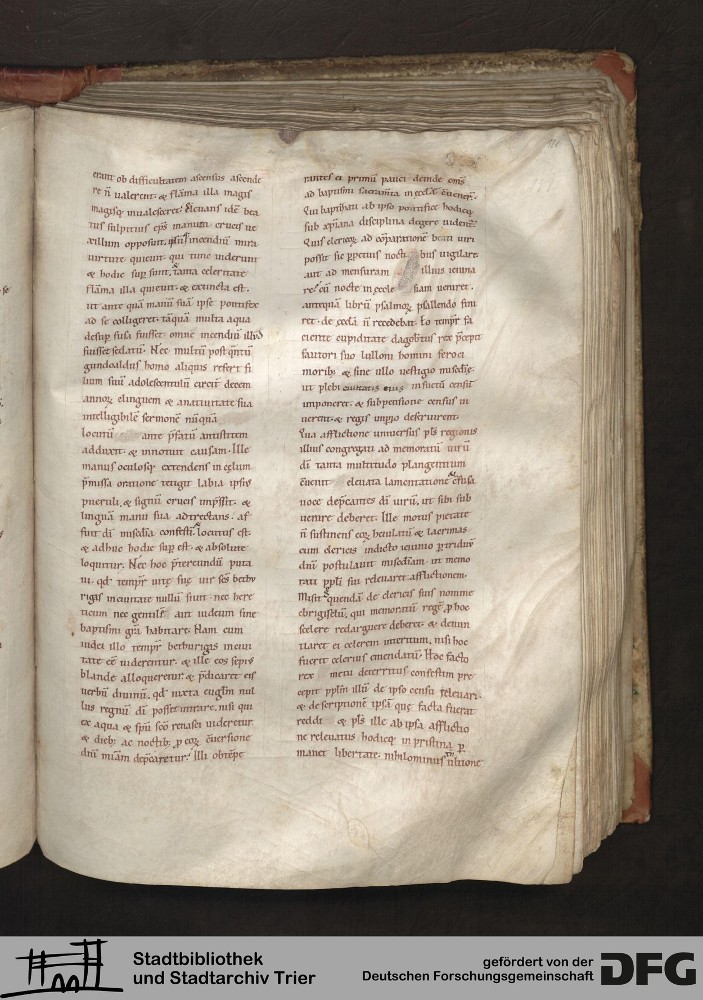 erant ob difficultatem ascensus ascende
re n̄ ualerent. & flāma illa magis
magisq; inualesceret. Eleuans idē bea
tus sulpitius ep̄s manum. crucis ue
xillum opposuit. ipsūq; incendiū mira
uirtute quieuit. qui tunc uiderunt
& hodie sup̄ sunt. tanta celeritate
flāma illa quieuit. & extincta est.
ut ante quā manū suā ipse pontifex
ad se colligeret. tāquā multa aqua
desup̄ fusa fuisset. omne incendiū illud
fuisset sedatū. Nec multū post q̄ntū
gundoaldus homo aliquis refert fi
lium suū adolescentulū circit̄ decem
annoꝝ elinguem & a natiuitate sua
intelligibilē sermonē nūquā
locutū ante p̄fatū antistitem
adduxit. & innotuit causam. Ille
manus oculosq; extendens in cęlum
p̄missa oratione tetigit labia ipsius
pueruli. & signū crucis imp̄ssit. &
linguā manu sua adtrectans. af
fuit dī misedīa confestī locutus est.
& adhuc hodie sup̄ est. & absolute
loquitur. Nec hoc p̄tereundū puta
ui. qd̄ tempr̄ uitę suę uir scs̄ betu
rigis in ciuitate nullū siuit. nec here
ticum nec gentilē. aut iudeum sine
baptismi grā habitare. Nam cum
iudei illo tempr̄ betburigas in ciui
tate eē uiderentur. & ille eos sepius
blande alloqueretur. & p̄dicaret eis
uerbū diuinū. qd̄ iuxta euglm̄ nul
lus regnū dī posset intrare. nisi qui
ex aqua & sp̄u scō renasci uideretur.
& dieb; ac noctib; ꝓ eoꝝ cōuersione
dnī miam dep̄caretur. Illi obtēpe
rantes ei primū pauci deinde om̄s
ad baptismi sacram̄ta in ęccl̄a cōuener̄.
Qui baptizati ab ipso pontifice hodieq;
sub xp̄iana disciplina degere uident̄.
Quis clericoꝝ ad cōparationē beati uiri
possit sic p̄petuis noctibus uigilare
aut ad mensuram illius ieiuna
re? cū nocte in ęcclesiam ueniret.
antequā librū psalmoꝝ psallendo fini
ret. de ęccl̄a n̄ recedebat. Eo tempr̄ fa
ciente cupiditate dagob̄tus rex p̄cepit
fautori suo lulloni homini feroci
morib; & sine ullo uestigio misedīę.
ut plebi ciuitatis eius insuetū censū
imponeret. & subpensione census in
uerent. & regis imꝑio deseruirent.
Qua afflictione uniuersus pl̄s regionis
illius congregati ad memoratū uirū
dī tanta multitudo plangentium
cōuenit eleuata lamentatione & effusa
uoce dep̄cantes dī uirū. ut sibi sub
uenire deberet. Ille motus pietate
n̄ sustinens eoꝝ heiulatū & lacrimas
cum clericis indicto ieiunio ꝑ triduū
dnm̄ postulauit misedīam. ut memo
rati pp̄li sui releuaret afflictionem.
Misit q; quendā de clericis suis nomine
ebrigisēlū. qui memoratū regē ꝓ hoc
scelere redarguere deberet. & denun
tiaret ei celerem interitum. nisi hoc
fuerit celerius emendatū. Hoc facto
rex metu deterritus confestim pre
cepit pp̄lm̄ illū de ipso censu releuari.
& descriptionē ipsā quę facta fuerat
reddi. & pl̄s ille ab ipsa afflictio
ne releuatus hodieq; in pristina ꝑ
manet libertate. nihilominus in ultione